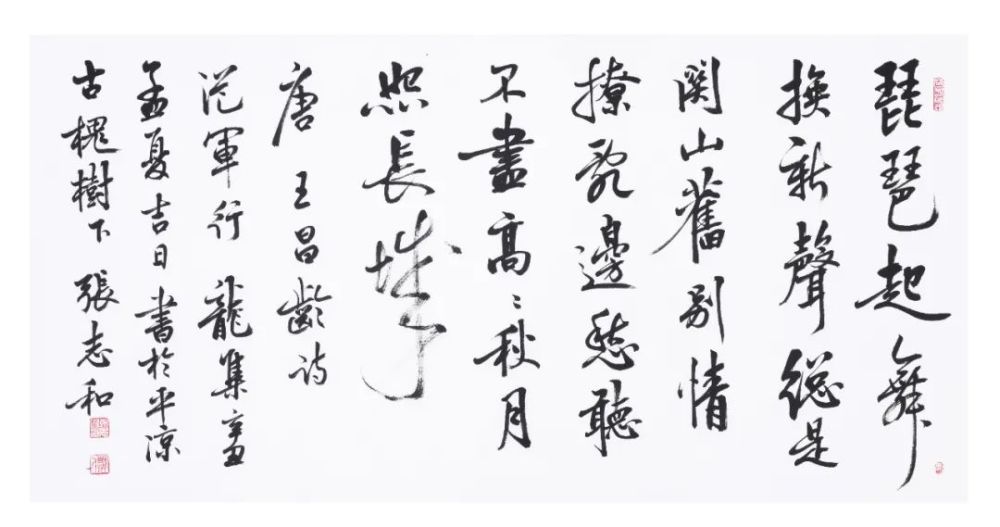 琵琶起舞
換新聲總是
関山舊別情
撩亂邊愁聽
不盡高〻秋月
照長城
唐 王昌齡詩
從軍行 龍集辛丑
孟夏吉日書於平涼
古槐樹下 張志和